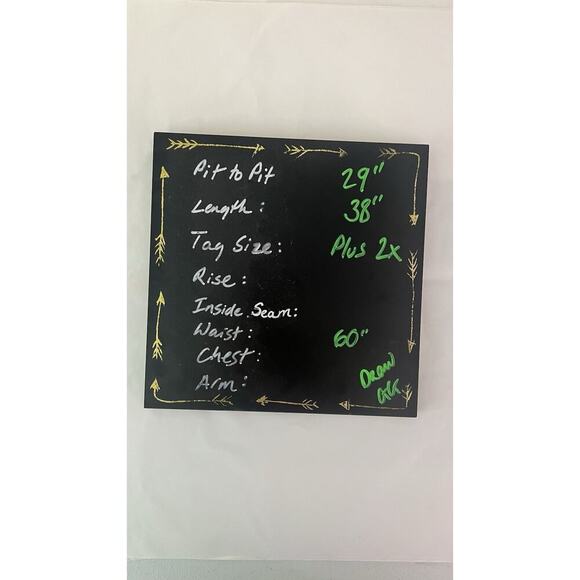 Pit to Pit 29"
Length: 38"
Tag Size: Plus 2x
Rise:
Inside Seam:
Waist: 60"
Chest:
Arm:
Draw